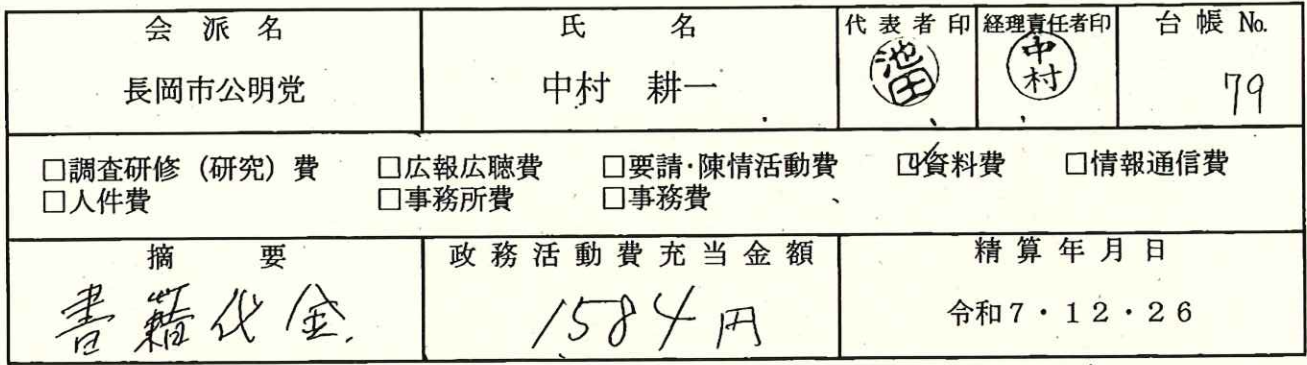 会派名 氏名 代表者印 経理責任者印 台帳 No.
長岡市公明党 中村 耕一 池田 中村 79
□調査研修（研究）費 □広報広聴費 □要請・陳情活動費 ☑資料費 □情報通信費
□人件費 □事務所費 □事務費
摘要 政務活動費充当金額 精算年月日
書籍代金 1584円 令和7・12・26